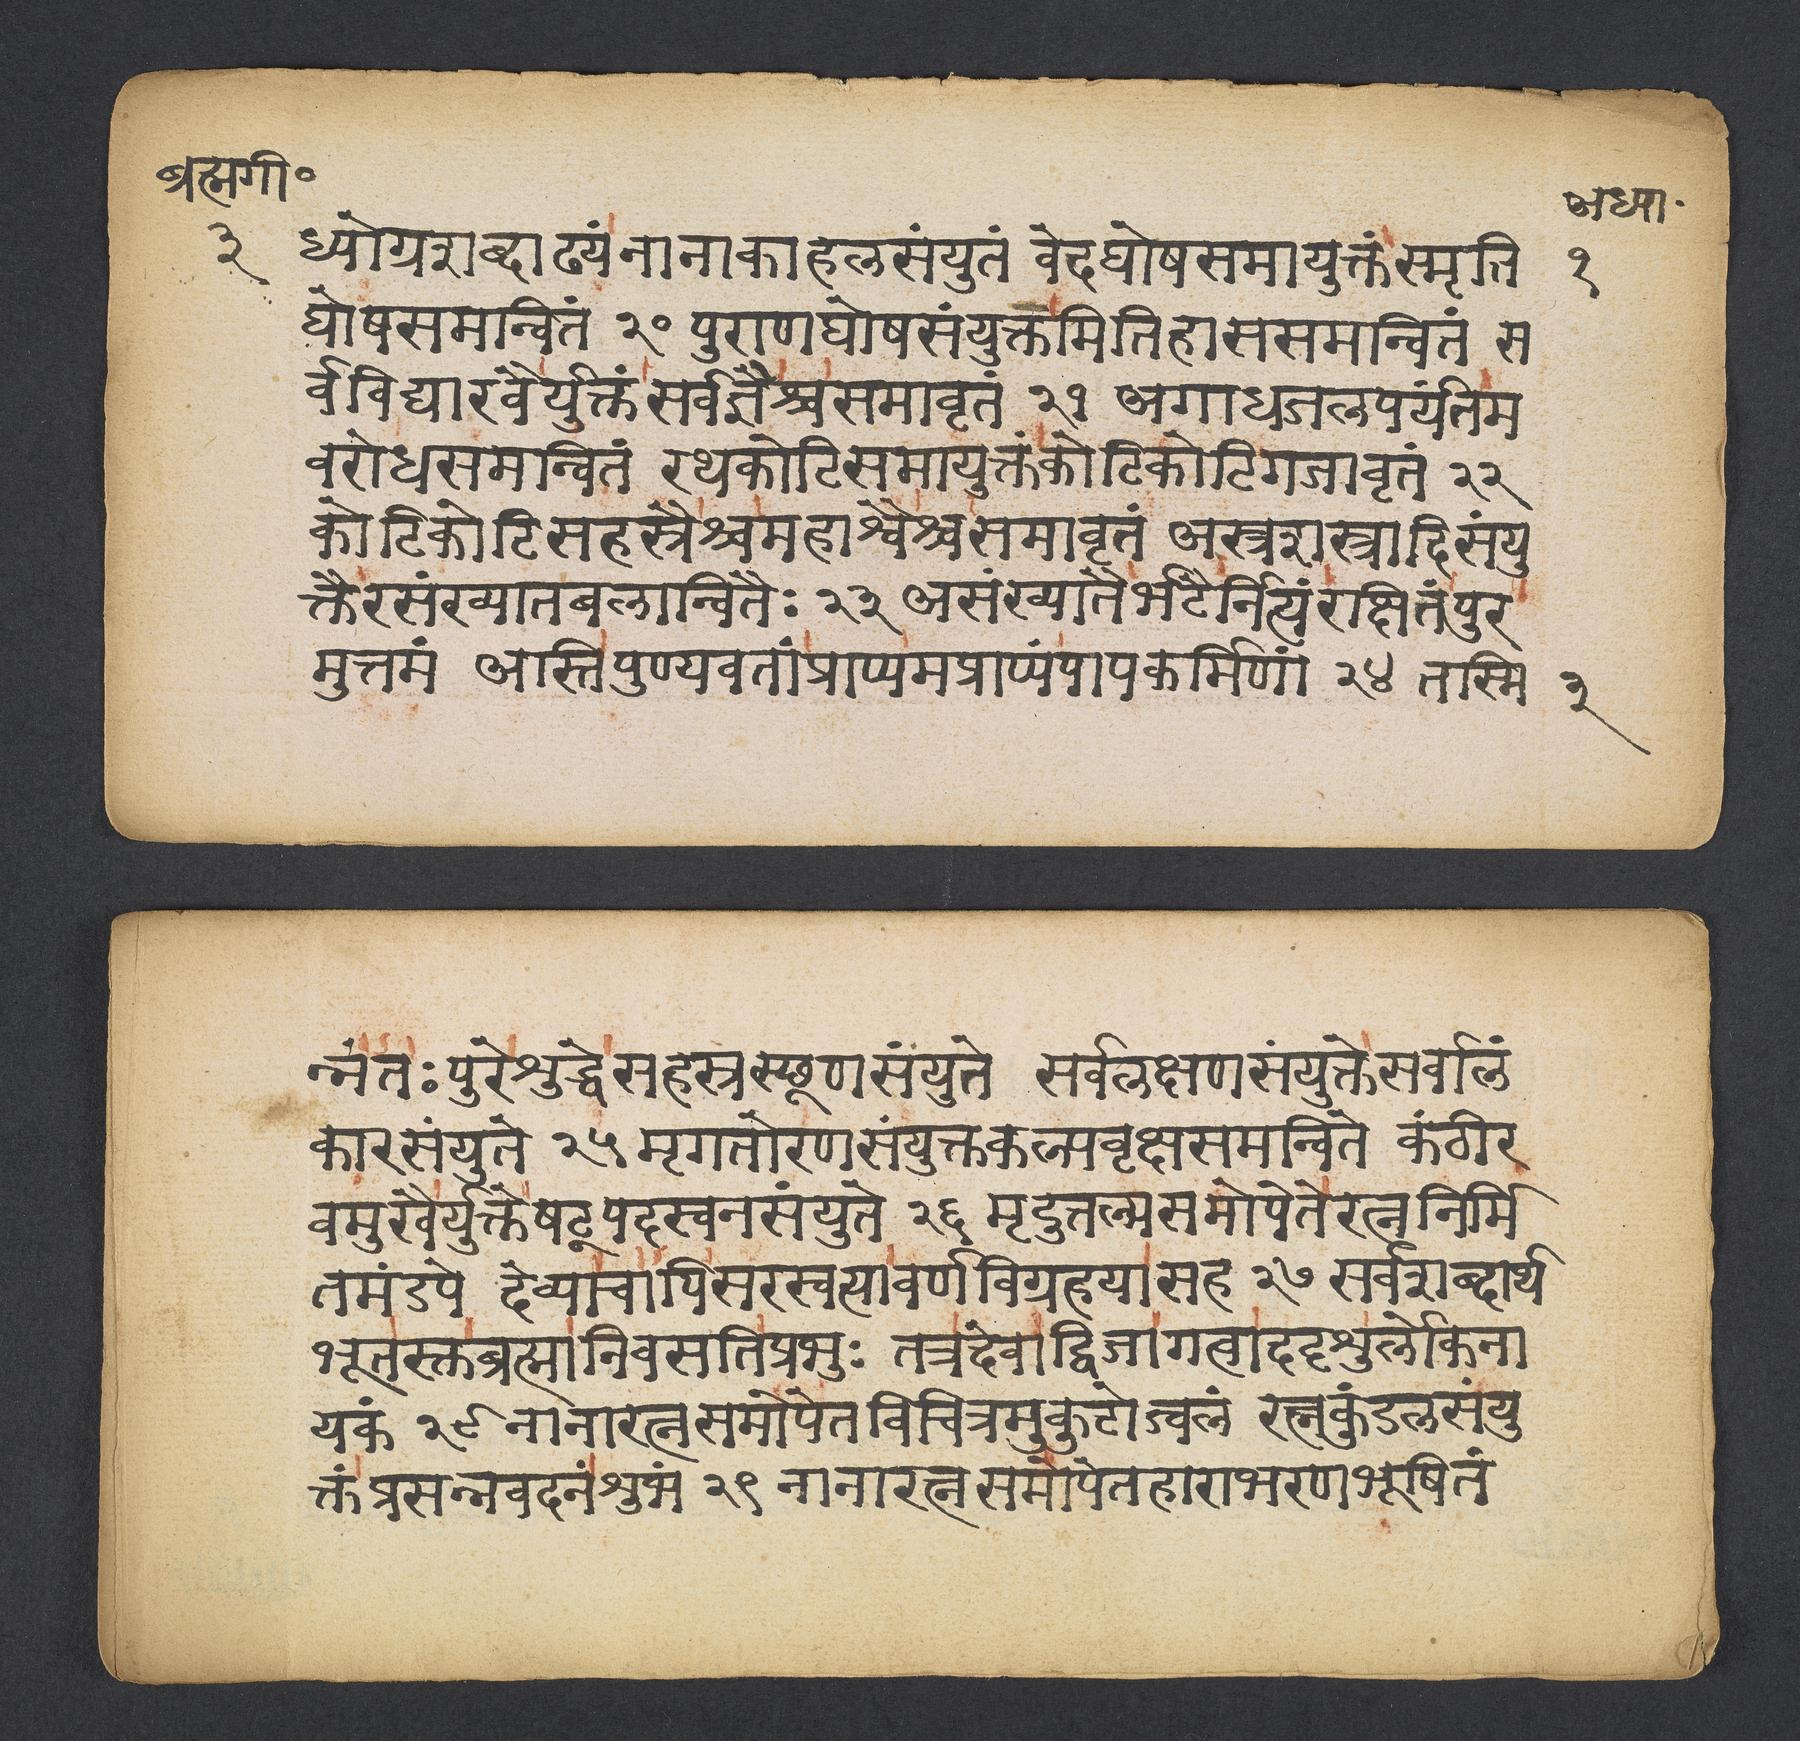 ब्रह्मगी॰
अध्या॰
३ ध्योग्रशब्दाढ्यंनानाकाहलसंयुतं वेदघोषसमायुक्तंस्मृति १
घोषसमान्वितं २० पुराणघोषसंयुक्तमितिहाससमान्वितं स
र्वविद्यारवैर्युक्तंसर्वज्ञैश्चसमावृतं २१ अगाधजलपर्यंतम
वरोधसमान्वितं रथकोटिसमायुक्तंकोटिकोटिगजावृतं २२
कोटिकोटिसहस्रैश्चमहाश्वैश्चसमावृतं अस्त्रशस्त्रादिसंयु
क्तैरसंख्यातबलान्वितैः २३ असंख्यातैर्भटैर्नित्यंरक्षितंपुर
मुत्तमं आस्तिपुण्यवतांप्राप्यमप्राप्यंपापकर्मिणां २४ तस्मि ३
न्नंतःपुरेशुद्धेसहस्रस्छूणसंयुते सर्वलक्षणसंयुक्तेसर्वालं
कारसंयुते २५ मृगतोरणसंयुक्तकल्पवृक्षसमन्विते कंठीर
वमुखैर्युक्तेषट्पदस्वनसंयुते २६ मृदुतल्पसमोपेतेरत्ननिर्मि
तमंडपे देव्याचापिसरस्वत्यावर्णविग्रहयासह २७ सर्वशब्दार्थ
भूतस्तब्रह्मानिवसतिप्रभुः तत्रदेवाद्विजागत्वाददृशुर्लोकना
यकं २८ नानारत्नसमोपेतविचित्रमुकुटोज्वलं रत्नकुंडलसंयु
क्तंप्रसन्नवदनंशुभं २९ नानारत्नसमोपेतहाराभरणभूषितं